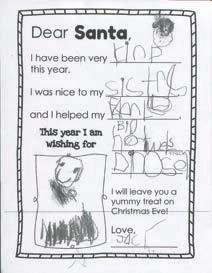 Dear Santa,
I have been very kinp
this year.
I was nice to my sistrs
and I helped my
This year I am
wishing for
Big
I will leave you a
yummy treat on
Christmas Eve!
Love,